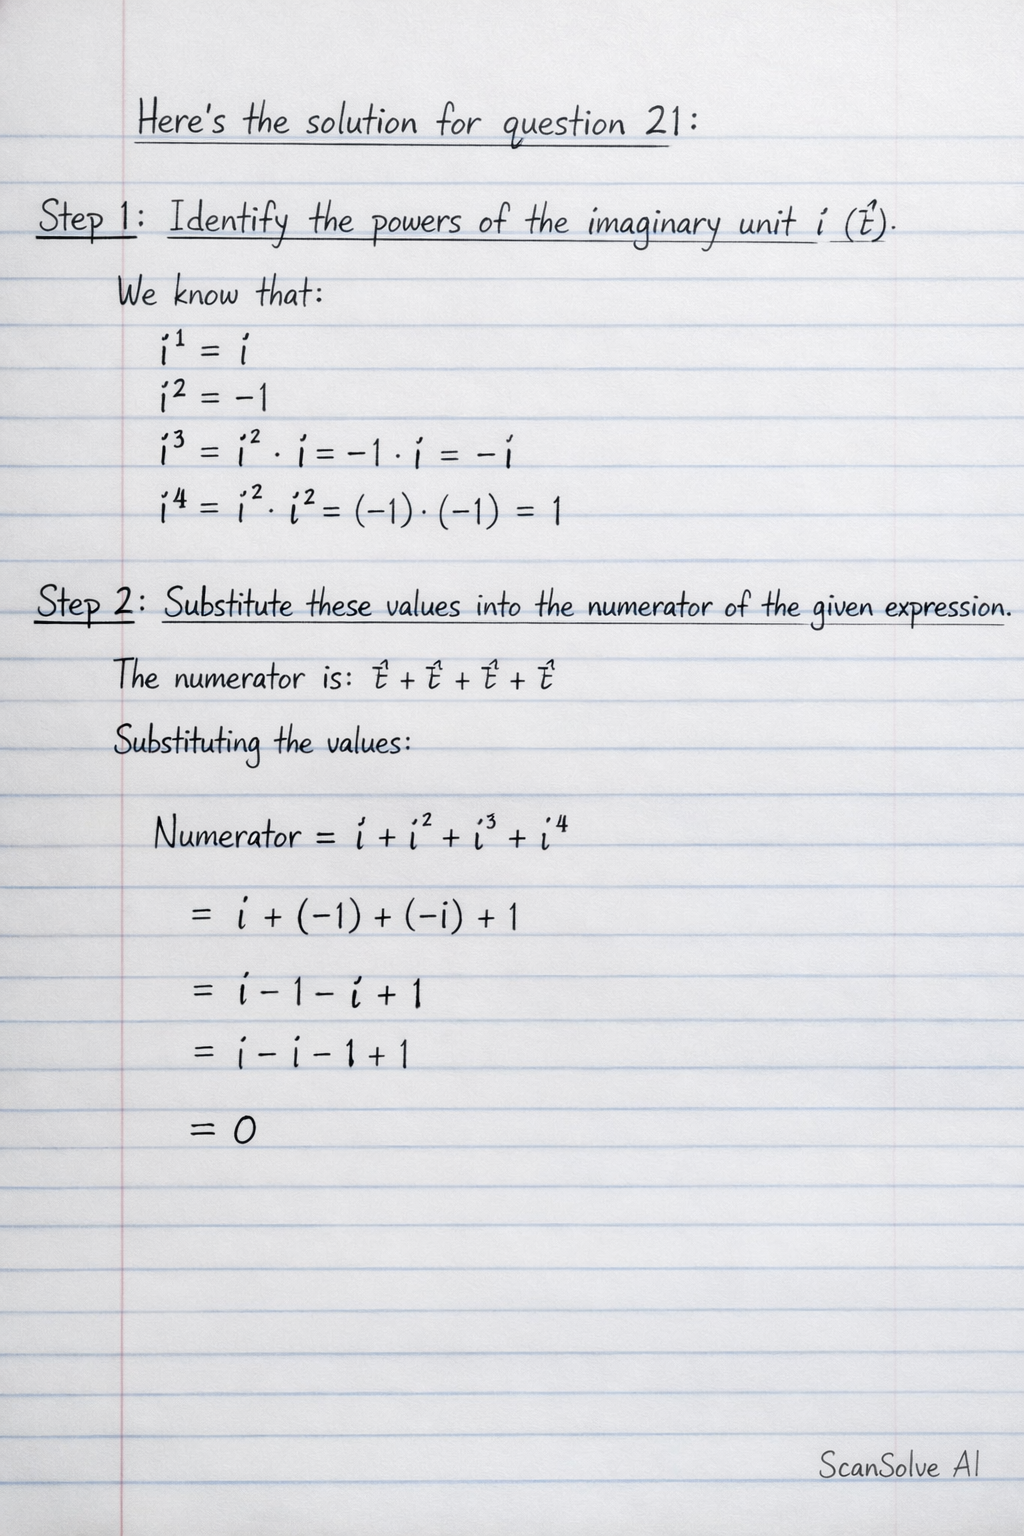 Here's the solution for question 21:
Step 1: Identify the powers of the imaginary unit i (t⃗).
We know that:
i¹ = i
i² = −1
i³ = i² · i = −1 · i = −i
i⁴ = i² · i² = (−1) · (−1) = 1
Step 2: Substitute these values into the numerator of the given expression.
The numerator is: t⃗ + t⃗ + t⃗ + t⃗
Substituting the values:
Numerator = i + i² + i³ + i⁴
= i + (−1) + (−i) + 1
= i − 1 − i + 1
= i − i − 1 + 1
= 0
ScanSolve AI